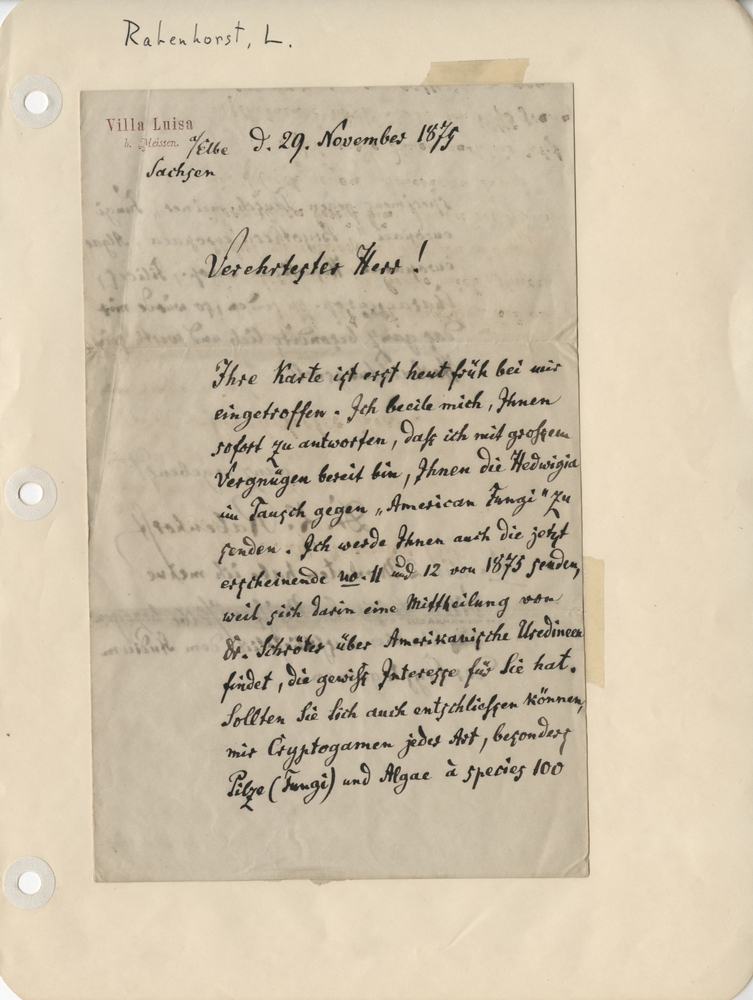 Rabenhorst, L.
Villa Luisa
b. Meissen.
a/Elbe d. 29. November 1875
Sachsen
Verehrtester Herr!
Ihre Karte ist erst heut früh bei mir
eingetroffen. Ich beeile mich, Ihnen
sofort zu antworten, dass ich mit grossem
Vergnügen bereit bin, Ihnen die Hedwigia
im Tausch gegen „American Fungi" zu
senden. Ich werde Ihnen auch die jetzt
erscheinende no. 11 und 12 von 1875 senden,
weil sich darin eine Mittheilung von
Dr. Schröter über Amerikanische Uredineen
findet, die gewiss Interesse für Sie hat.
Sollten Sie Sich auch entschliessen können,
mir Cryptogamen jeder Art, besonders
Pilze (Fungi) und Algae à species 100